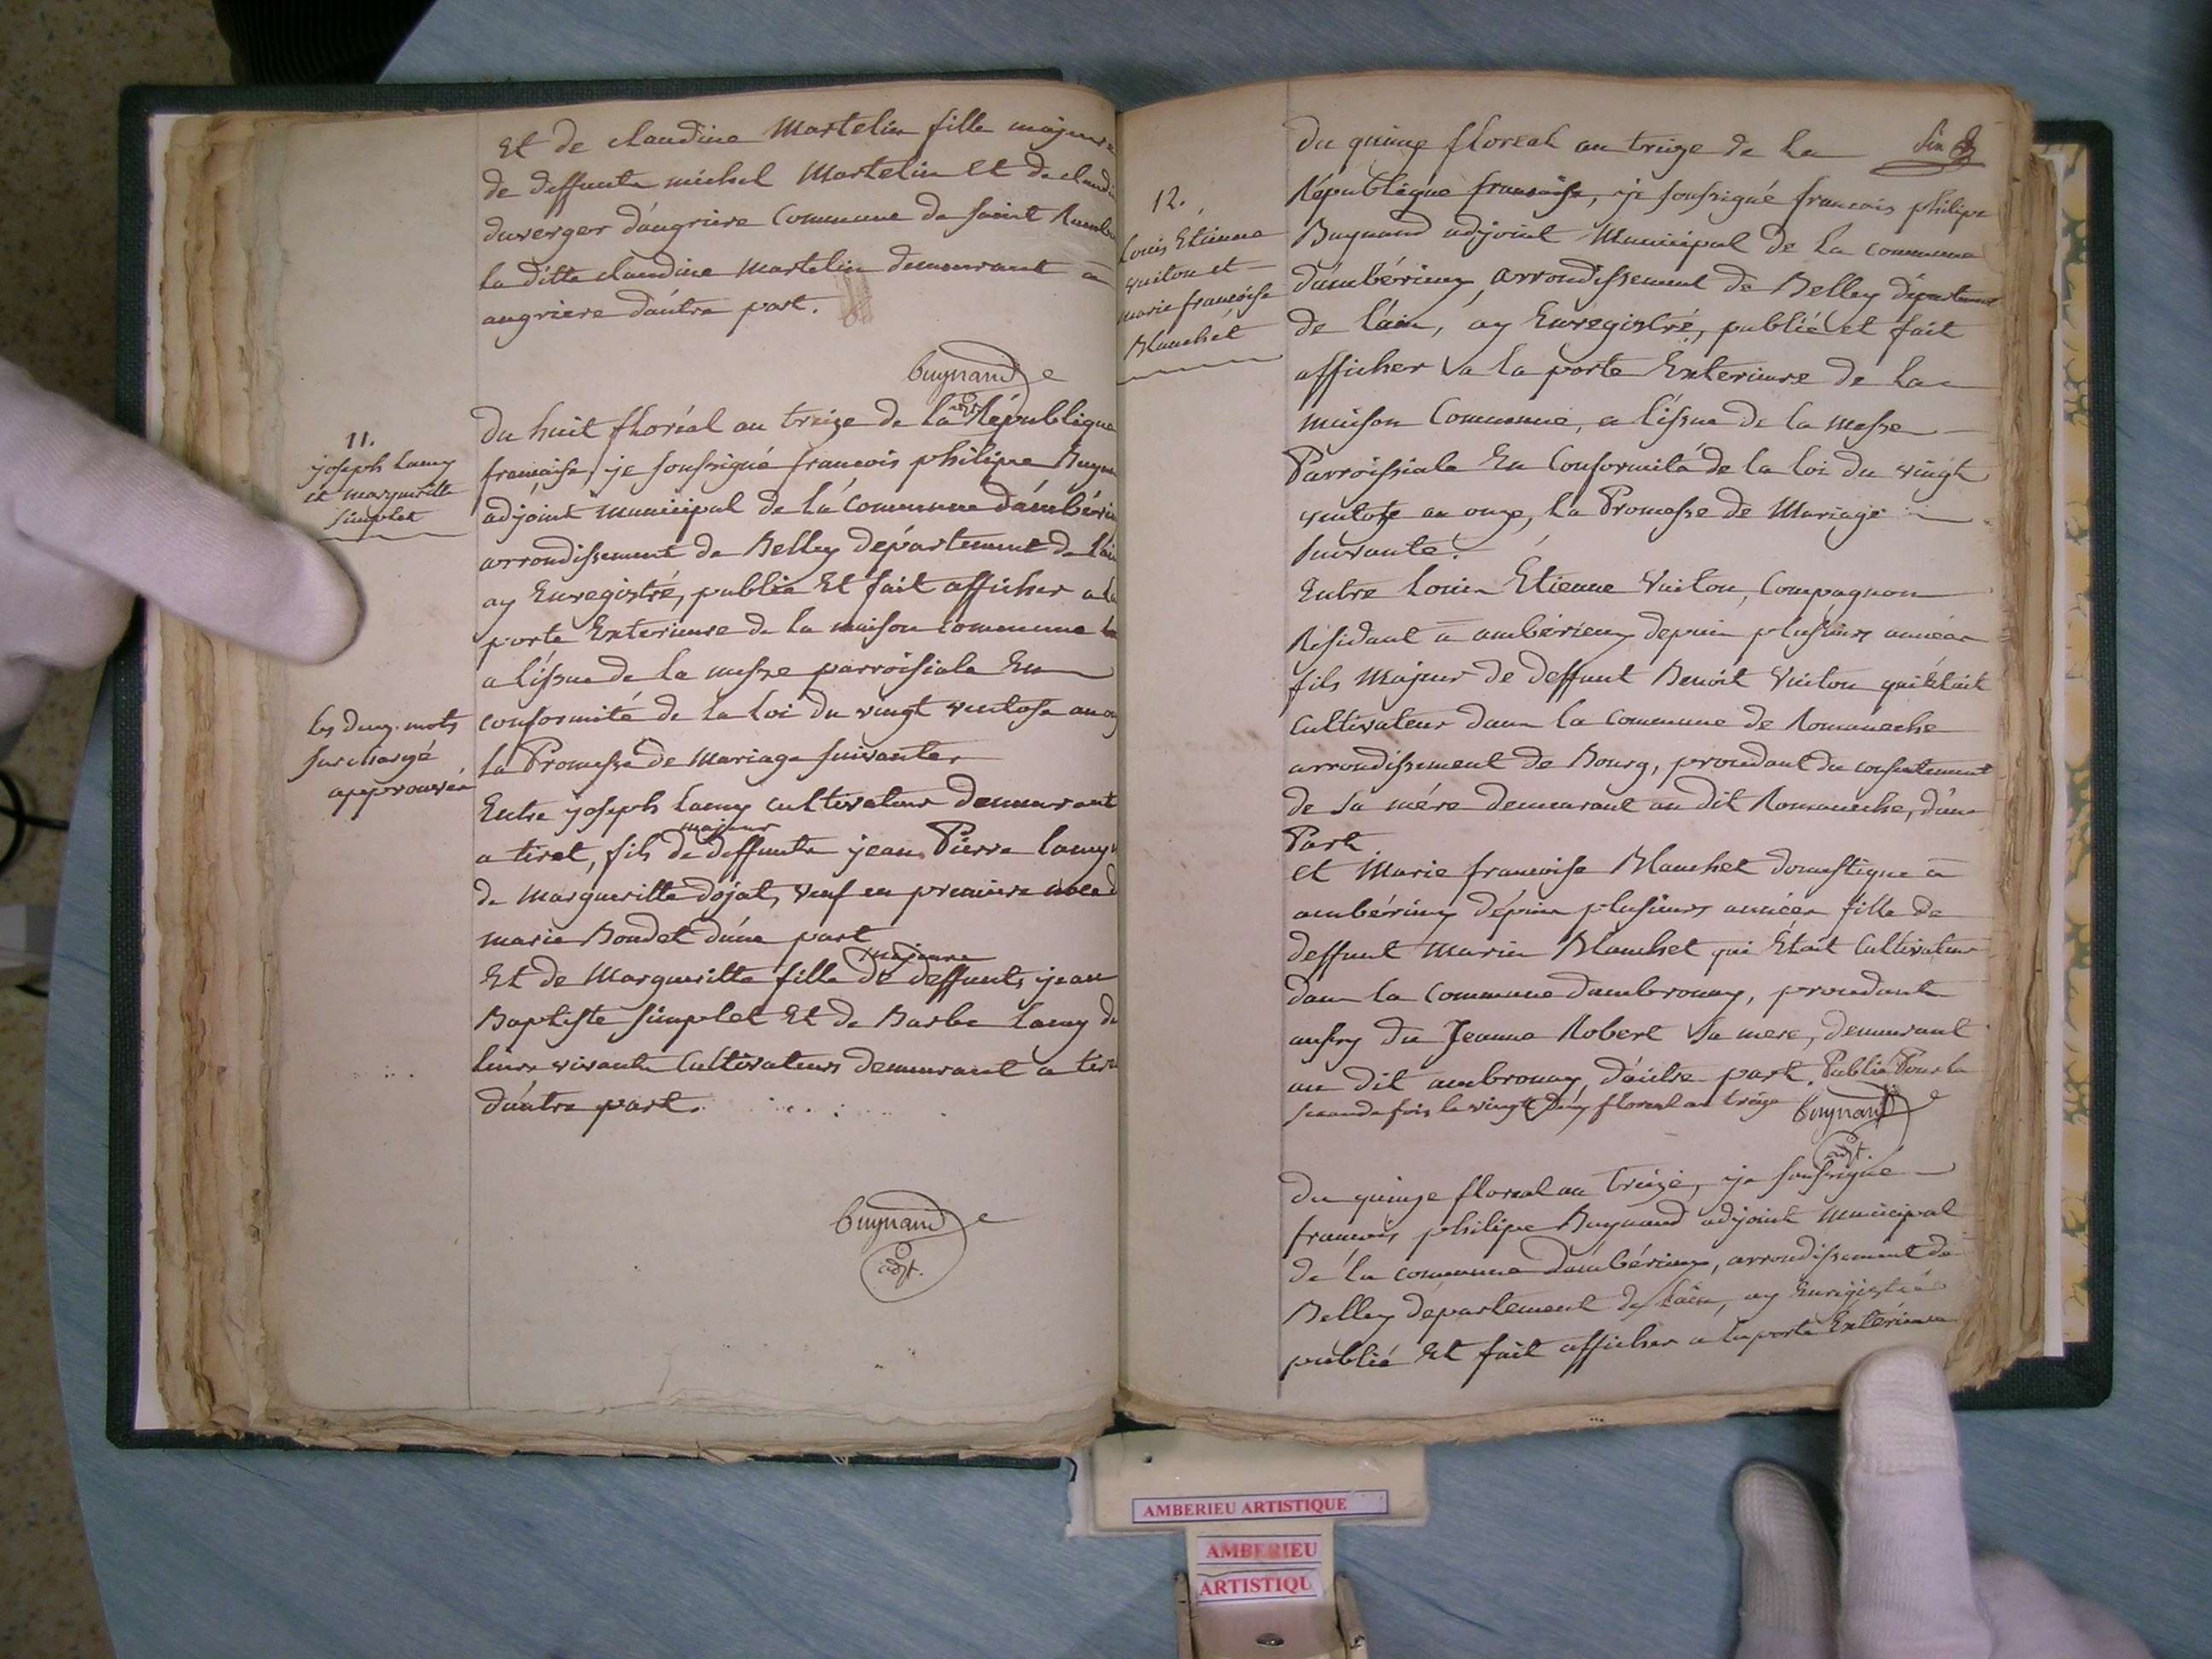 Et de claudine Martelin fille majeure
de deffunts michel Martelin et de claudi
duverger d'angriere Commune de saint Ramb
la ditte claudine Martelin demeurant a
angriere d'autre part.
Buynand
adjt
11.
joseph Lamy
et margueritte
simplet
Du huit floréal an treize de la République
francaise, je soussigné francois philipe Buyn
adjoint municipal de la commune d'ambérie
arrondissement de Belley département de l'ai
ay Enregistré, publié Et fait afficher a la
porte Exterieure de la maison commune
a l'issue de la messe parroissiale En
conformité de la loi du vingt ventose an on
la Promesse de mariage suivante,
les deux mots
surchargé
approuvés
Entre joseph Lamy cultivateur demeurant
majeur
a tiret, fils de deffunts jean Pierre Lamy
de margueritte dojat, veuf en premiere noce d
marie Bondet d'une part
majeure
Et de Margueritte fille de deffunts jean
Baptiste simplet Et de Barbe Lamy de
leurs vivants Cultivateurs demeurant a tire
d'autre part.
Buynand
adjt.
Du quinze floreal an treize de la
Six
12.
Louis Etienne
vuiton et
marie francoise
Blanchet
République francaise, je soussigné francois philipe
Buynand adjoint Municipal de la commune
d'ambérieux, arrondissement de Belley département
de l'ain, ay Enregistré, publié et fait
afficher a la porte Exterieure de la
maison Commune, a l'issue de la messe
Parroissiale En Conformité de la loi du vingt
ventose an onze, la Promesse de Mariage
suivante.
Entre Louis Etienne Vuiton, Compagnon
Résidant a ambérieux depuis plusieurs années
fils Majeur de deffunt Benoit Vuiton qui était
Cultivateur dans la commune de Romaneche
arrondissement de Bourg, procédant du consentement
de sa mére demeurant au dit Romaneche, d'une
Part
et Marie francoise Blanchet domestique a
ambérieux dépuis plusieurs années fille de
deffunt Marin Blanchet qui Etait Cultivateur
dans la Commune d'ambronay, procédant
aussy de Jeanne Robert sa mere, demeurant
au dit ambronay, d'autre part. Publié Pour la
seconde fois le vingt deux floreal an treize Buynand
adjt.
Du quinze floreal an treize, je soussigné
francois philipe Buynand adjoint municipal
de la commune d'ambérieux, arrondissement de
Belley département de l'ain, ay Enregistré
publié Et fait afficher a la porte Extérieure
AMBERIEU ARTISTIQUE
AMBERIEU
ARTISTIQU